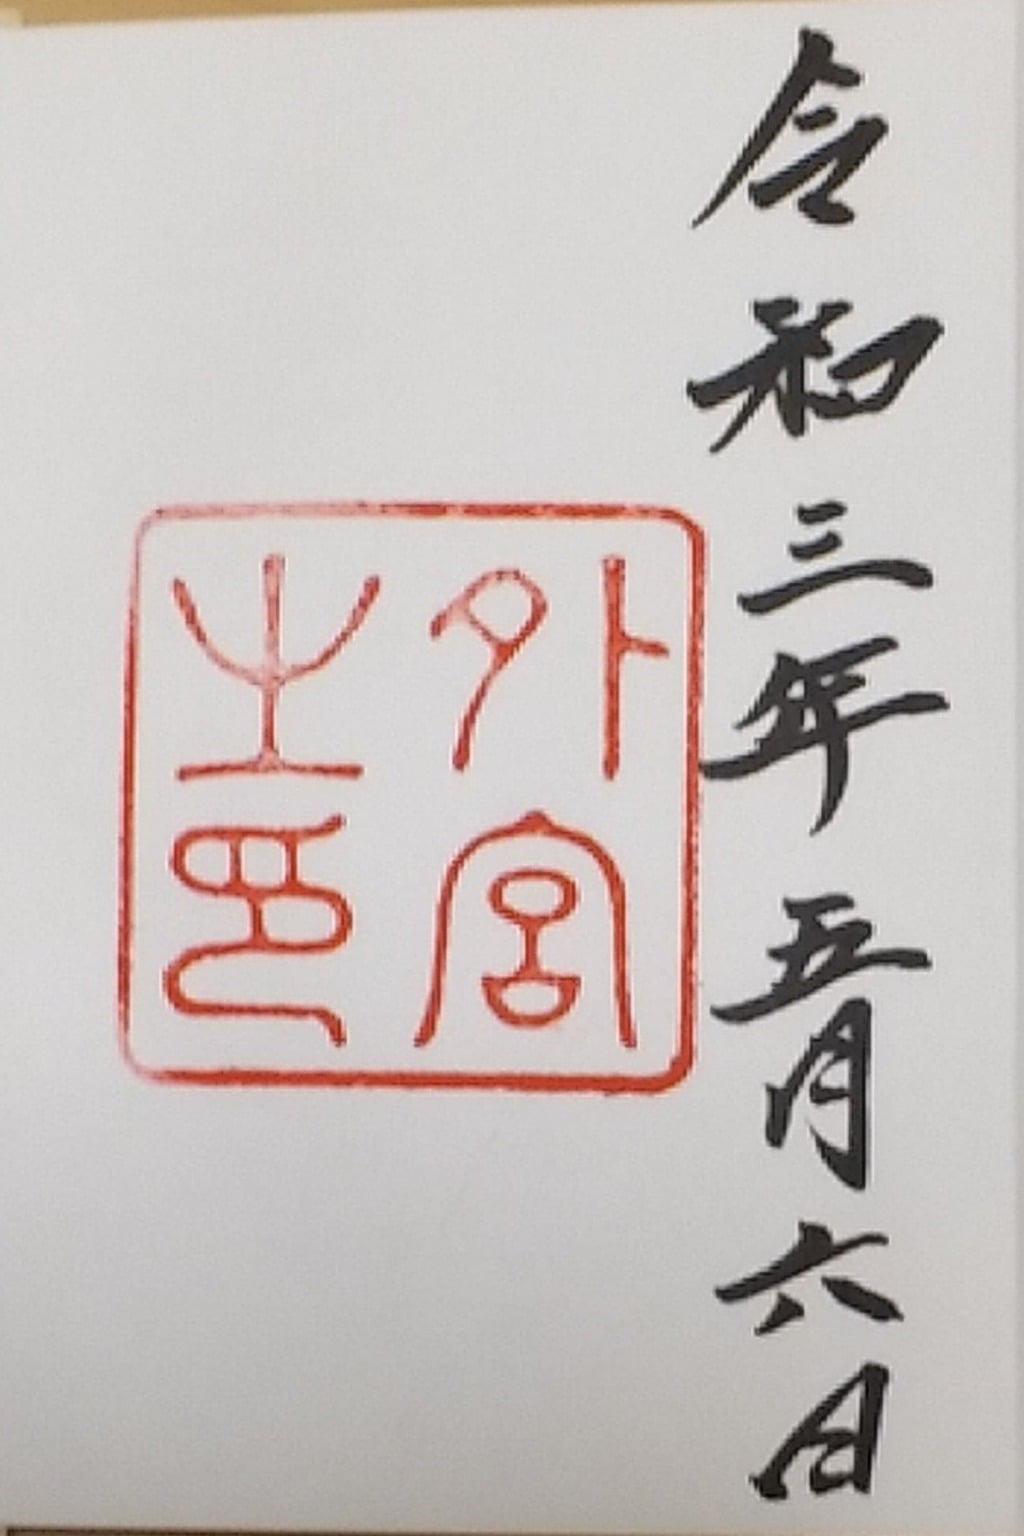 令和三年五月六日
外宮
之印